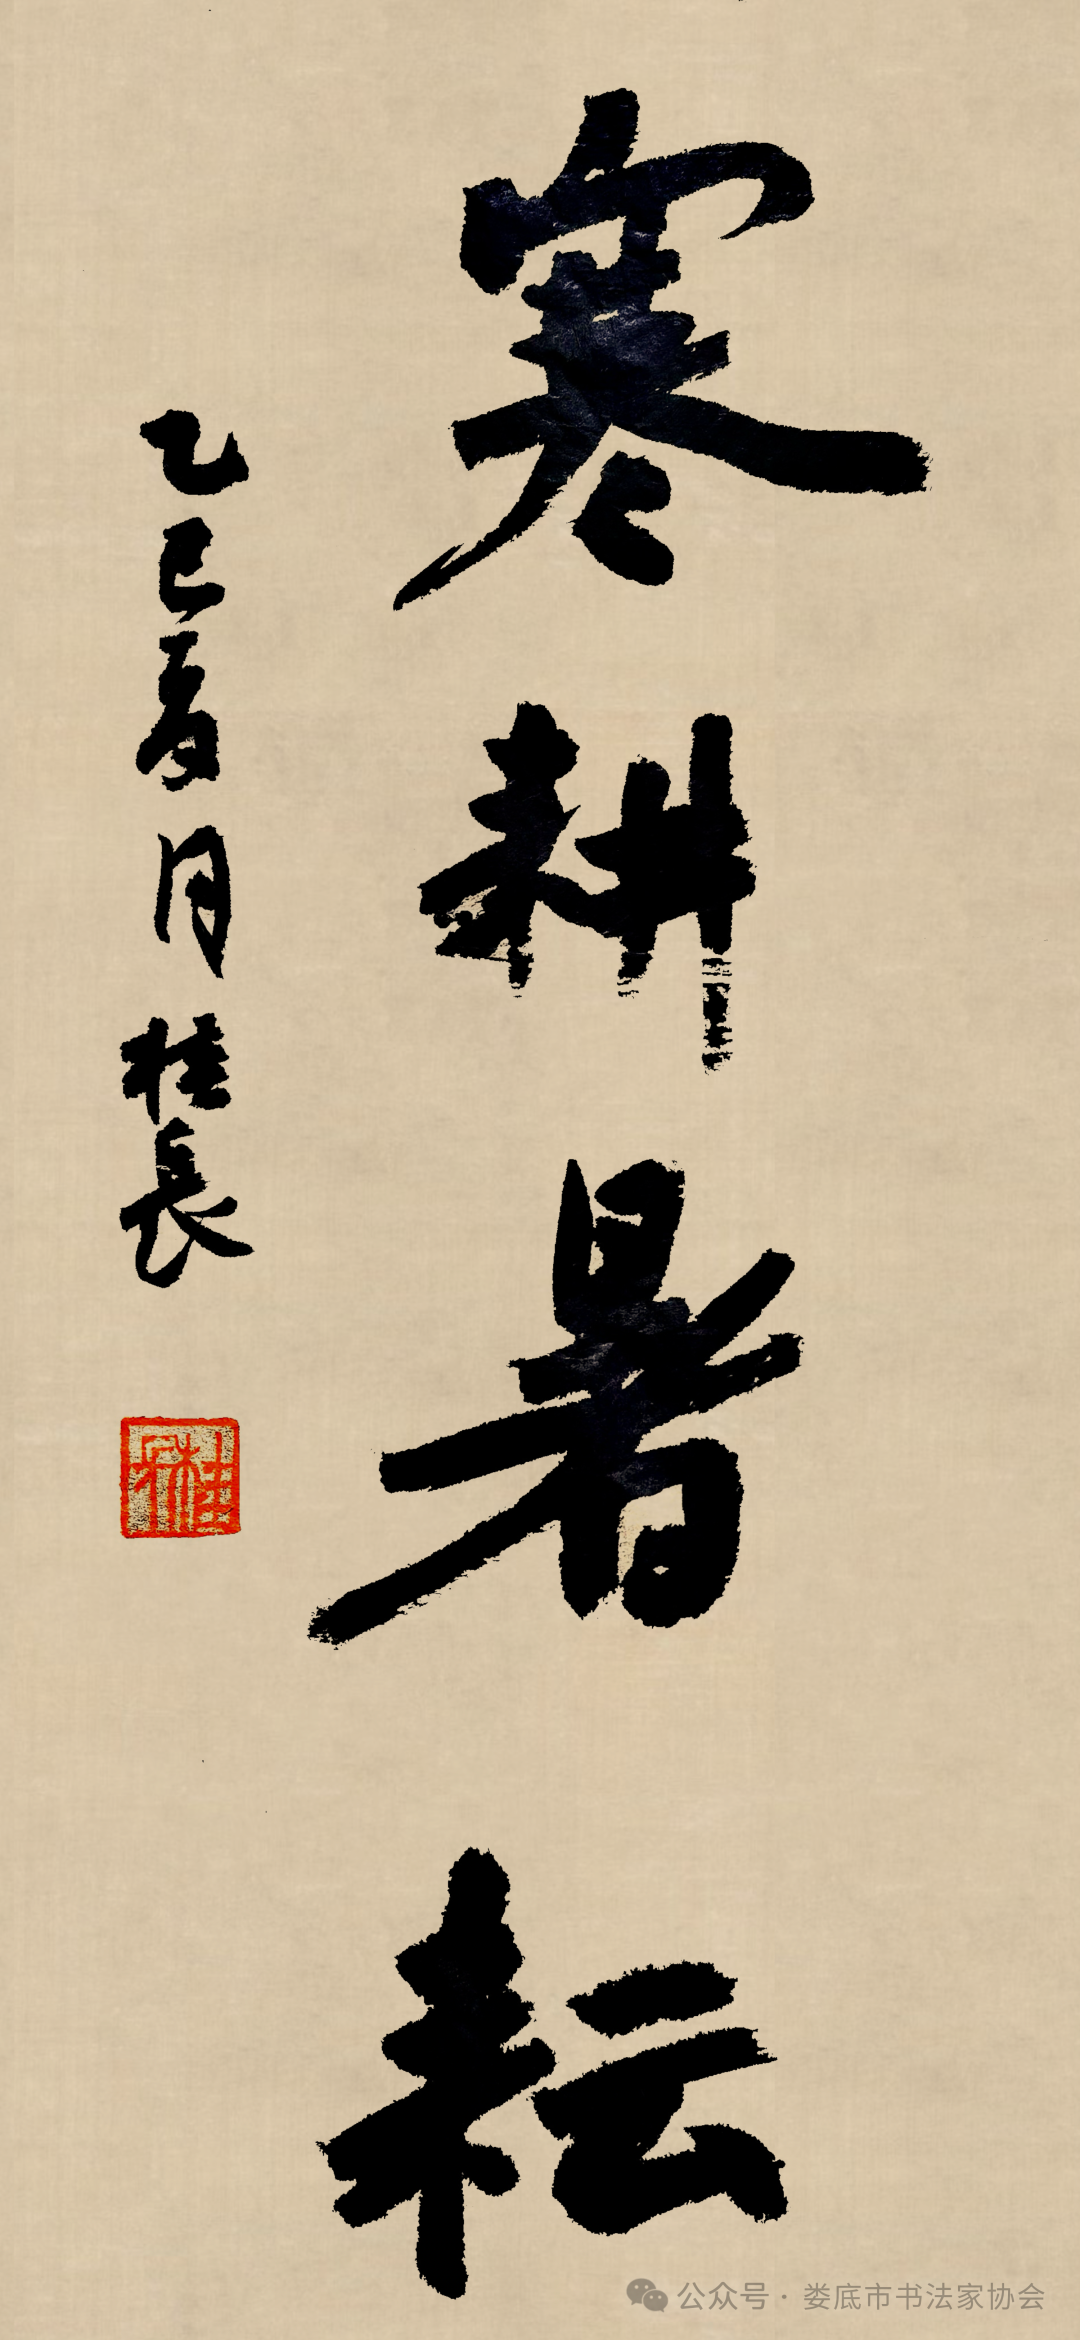 寒耕暑耘
乙巳夏月桂長
公众号 · 娄底市书法家协会